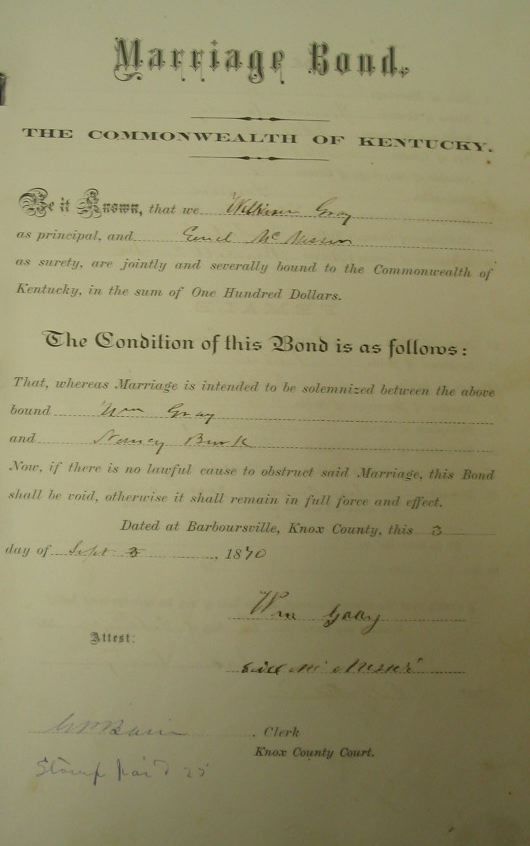 Marriage Bond.
THE COMMONWEALTH OF KENTUCKY.
Be it Known, that we Gray
as principal, and Mc
as surety, are jointly and severally bound to the Commonwealth of
Kentucky, in the sum of One Hundred Dollars.
The Condition of this Bond is as follows:
That, whereas Marriage is intended to be solemnized between the above
bound Wm Gray
and Nancy Burk
Now, if there is no lawful cause to obstruct said Marriage, this Bond
shall be void, otherwise it shall remain in full force and effect.
Dated at Barboursville, Knox County, this 3
day of Sept 3, 1870
Wm Gray
Attest:
Clerk
Knox County Court.
Stamp paid 25